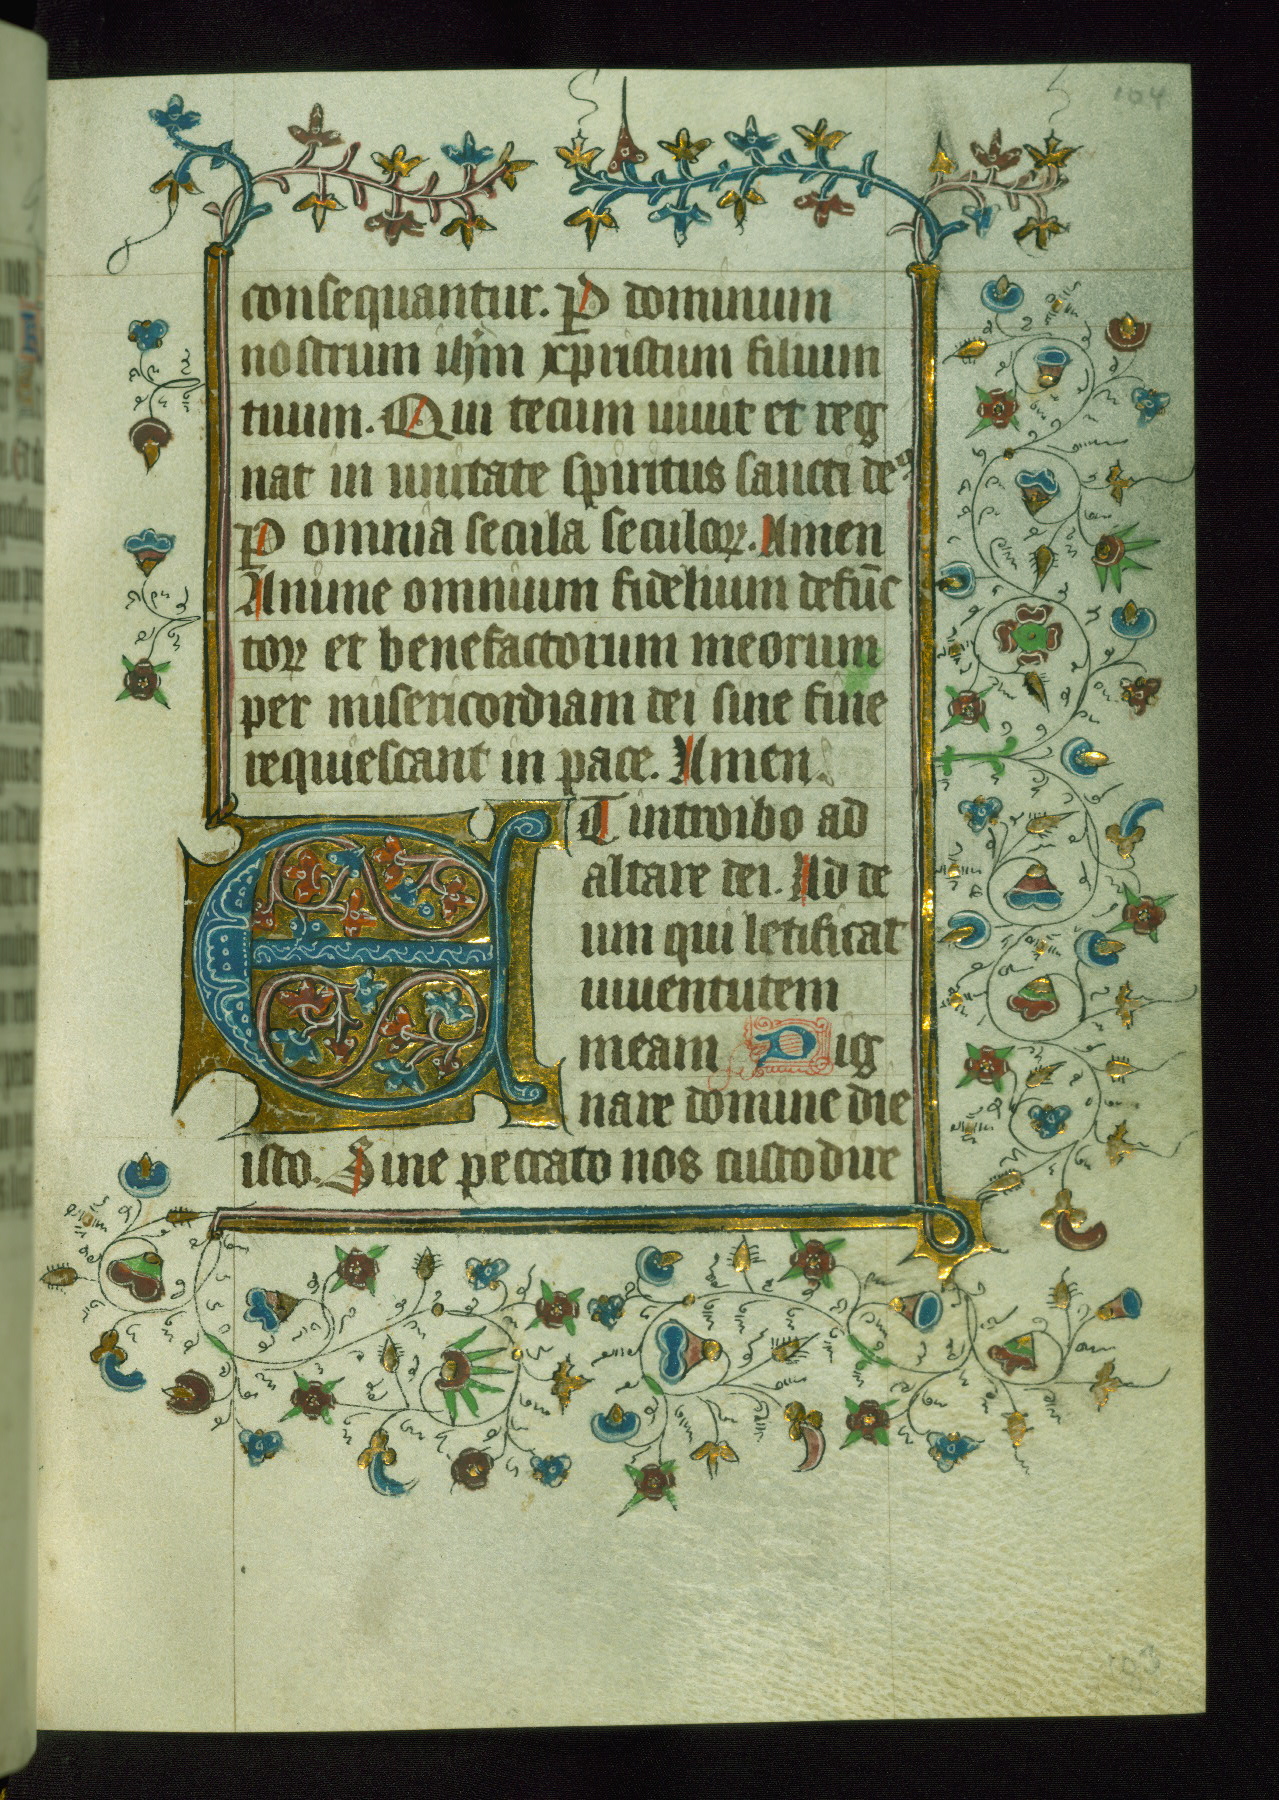 104
consequantur. P dominum
nostrum ihm xpristum filium
tuum. Qui tecum uiuit et reg
nat in unitate spiritus sancti deꝯ
P omnia secula seculoꝝ. Amen
Anime omnium fidelium defūc
toꝝ et benefactorum meorum
per misericordiam dei sine fine
requiescant in pace. Amen.
ET introibo ad
altare dei. Ad de
um qui letificat
iuuentutem
meam Dig
nare domine die
isto. Sine peccato nos custodire
103